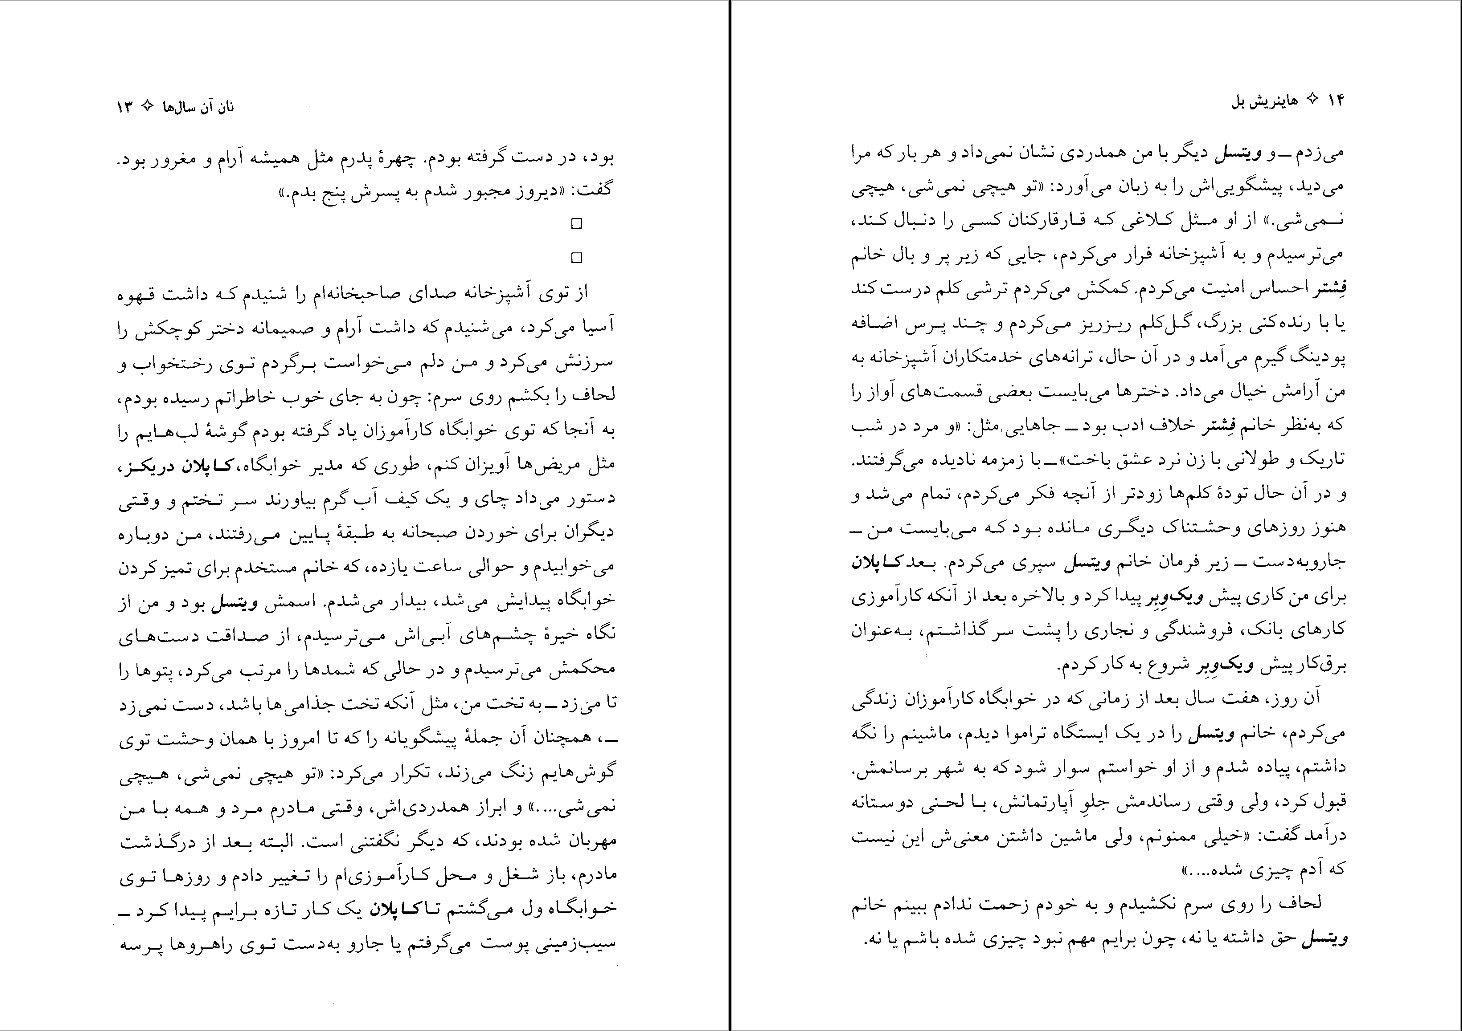 نان آن سال‌ها ✧ ۱۳
بود، در دست گرفته بودم. چهرهٔ پدرم مثل همیشه آرام و مغرور بود.
گفت: «دیروز مجبور شدم به پسرش پنج بدم.»
□
□
از توی آشپزخانه صدای صاحبخانه‌ام را شنیدم که داشت قهوه
آسیا می‌کرد، می‌شنیدم که داشت آرام و صمیمانه دختر کوچکش را
سرزنش می‌کرد و من دلم می‌خواست برگردم توی رختخواب و
لحاف را بکشم روی سرم: چون به جای خوب خاطراتم رسیده بودم،
به آنجا که توی خوابگاه کارآموزان یاد گرفته بودم گوشهٔ لب‌هایم را
مثل مریض‌ها آویزان کنم، طوری که مدیر خوابگاه، کاپلان دربکز،
دستور می‌داد چای و یک کیف آب گرم بیاورند سر تختم و وقتی
دیگران برای خوردن صبحانه به طبقهٔ پایین می‌رفتند، من دوباره
می‌خوابیدم و حوالی ساعت یازده، که خانم مستخدم برای تمیز کردن
خوابگاه پیدایش می‌شد، بیدار می‌شدم. اسمش ویتسل بود و من از
نگاه خیرهٔ چشم‌های آبی‌اش می‌ترسیدم، از صداقت دست‌های
محکمش می‌ترسیدم و در حالی که شمدها را مرتب می‌کرد، پتوها را
تا می‌زد ــ به تخت من، مثل آنکه تخت جذامی‌ها باشد، دست نمی‌زد
ــ، همچنان آن جملهٔ پیشگویانه را که تا امروز با همان وحشت توی
گوش‌هایم زنگ می‌زند، تکرار می‌کرد: «تو هیچی نمی‌شی، هیچی
نمی‌شی....» و ابراز همدردی‌اش، وقتی مادرم مرد و همه با من
مهربان شده بودند، که دیگر نگفتنی است. البته بعد از درگذشت
مادرم، باز شغل و محل کارآموزی‌ام را تغییر دادم و روزها توی
خوابگاه ول می‌گشتم تا کاپلان یک کار تازه برایم پیدا کرد ــ
سیب‌زمینی پوست می‌گرفتم یا جارو به‌دست توی راهروها پرسه
۱۴ ✧ هاینریش بل
می‌زدم ــ و ویتسل دیگر با من همدردی نشان نمی‌داد و هر بار که مرا
می‌دید، پیشگویی‌اش را به زبان می‌آورد: «تو هیچی نمی‌شی، هیچی
نمی‌شی.» از او مثل کلاغی که قارقارکنان کسی را دنبال کند،
می‌ترسیدم و به آشپزخانه فرار می‌کردم، جایی که زیر پر و بال خانم
فِشتر احساس امنیت می‌کردم. کمکش می‌کردم ترشی کلم درست کند
یا با رنده‌کنی بزرگ، گل‌کلم ریزریز می‌کردم و چند پرس اضافه
پودینگ گیرم می‌آمد و در آن حال، ترانه‌های خدمتکاران آشپزخانه به
من آرامش خیال می‌داد. دخترها می‌بایست بعضی قسمت‌های آواز را
که به‌نظر خانم فِشتر خلاف ادب بود ــ جاهایی مثل: «و مرد در شب
تاریک و طولانی با زن نرد عشق باخت» ــ با زمزمه نادیده می‌گرفتند.
و در آن حال تودهٔ کلم‌ها زودتر از آنچه فکر می‌کردم، تمام می‌شد و
هنوز روزهای وحشتناک دیگری مانده بود که می‌بایست من ــ
جاروبه‌دست ــ زیر فرمان خانم ویتسل سپری می‌کردم. بعد کاپلان
برای من کاری پیش ویک‌وِبِر پیدا کرد و بالاخره بعد از آنکه کارآموزی
کارهای بانک، فروشندگی و نجاری را پشت سر گذاشتم، به‌عنوان
برق‌کار پیش ویک‌وِبِر شروع به کار کردم.
آن روز، هفت سال بعد از زمانی که در خوابگاه کارآموزان زندگی
می‌کردم، خانم ویتسل را در یک ایستگاه تراموا دیدم، ماشینم را نگه
داشتم، پیاده شدم و از او خواستم سوار شود که به شهر برسانمش.
قبول کرد، ولی وقتی رساندمش جلوِ آپارتمانش، با لحنی دوستانه
درآمد گفت: «خیلی ممنونم، ولی ماشین داشتن معنی‌ش این نیست
که آدم چیزی شده....»
لحاف را روی سرم نکشیدم و به خودم زحمت ندادم ببینم خانم
ویتسل حق داشته یا نه، چون برایم مهم نبود چیزی شده باشم یا نه.